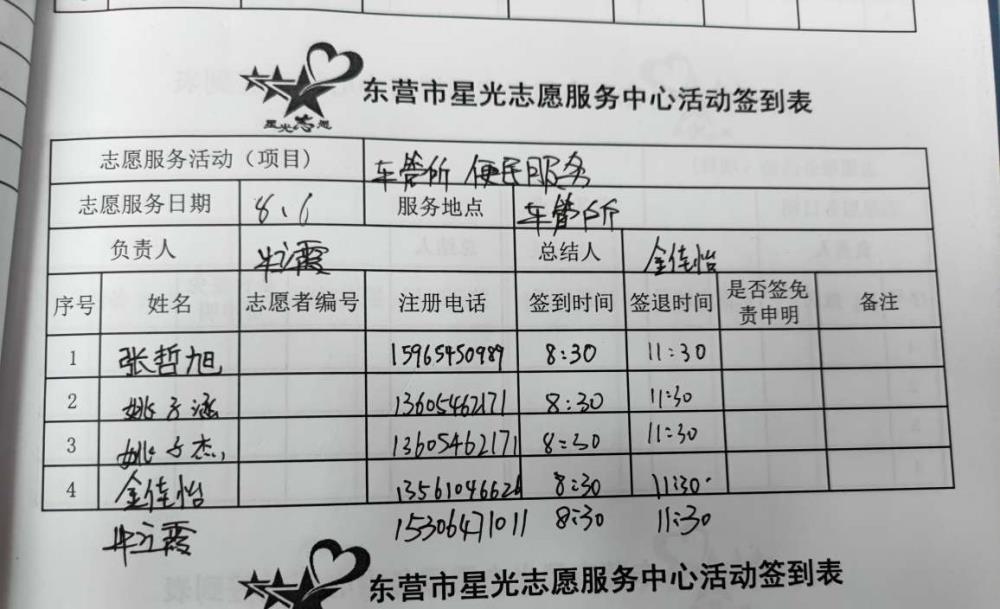 东营市星光志愿服务中心活动签到表
星光志愿
志愿服务活动（项目） 车管所 便民服务
志愿服务日期 8、6 服务地点 车管所
负责人 牟立霞 总结人 金佳怡
序号 姓名 志愿者编号 注册电话 签到时间 签退时间 是否签免责申明 备注
1 张哲旭 15965450989 8:30 11:30
2 姚子涵 13605462171 8:30 11:30
3 姚子杰 13605462171 8:30 11:30
4 金佳怡 8:30 11:30
牟立霞 15306471011 8:30 11:30
东营市星光志愿服务中心活动签到表